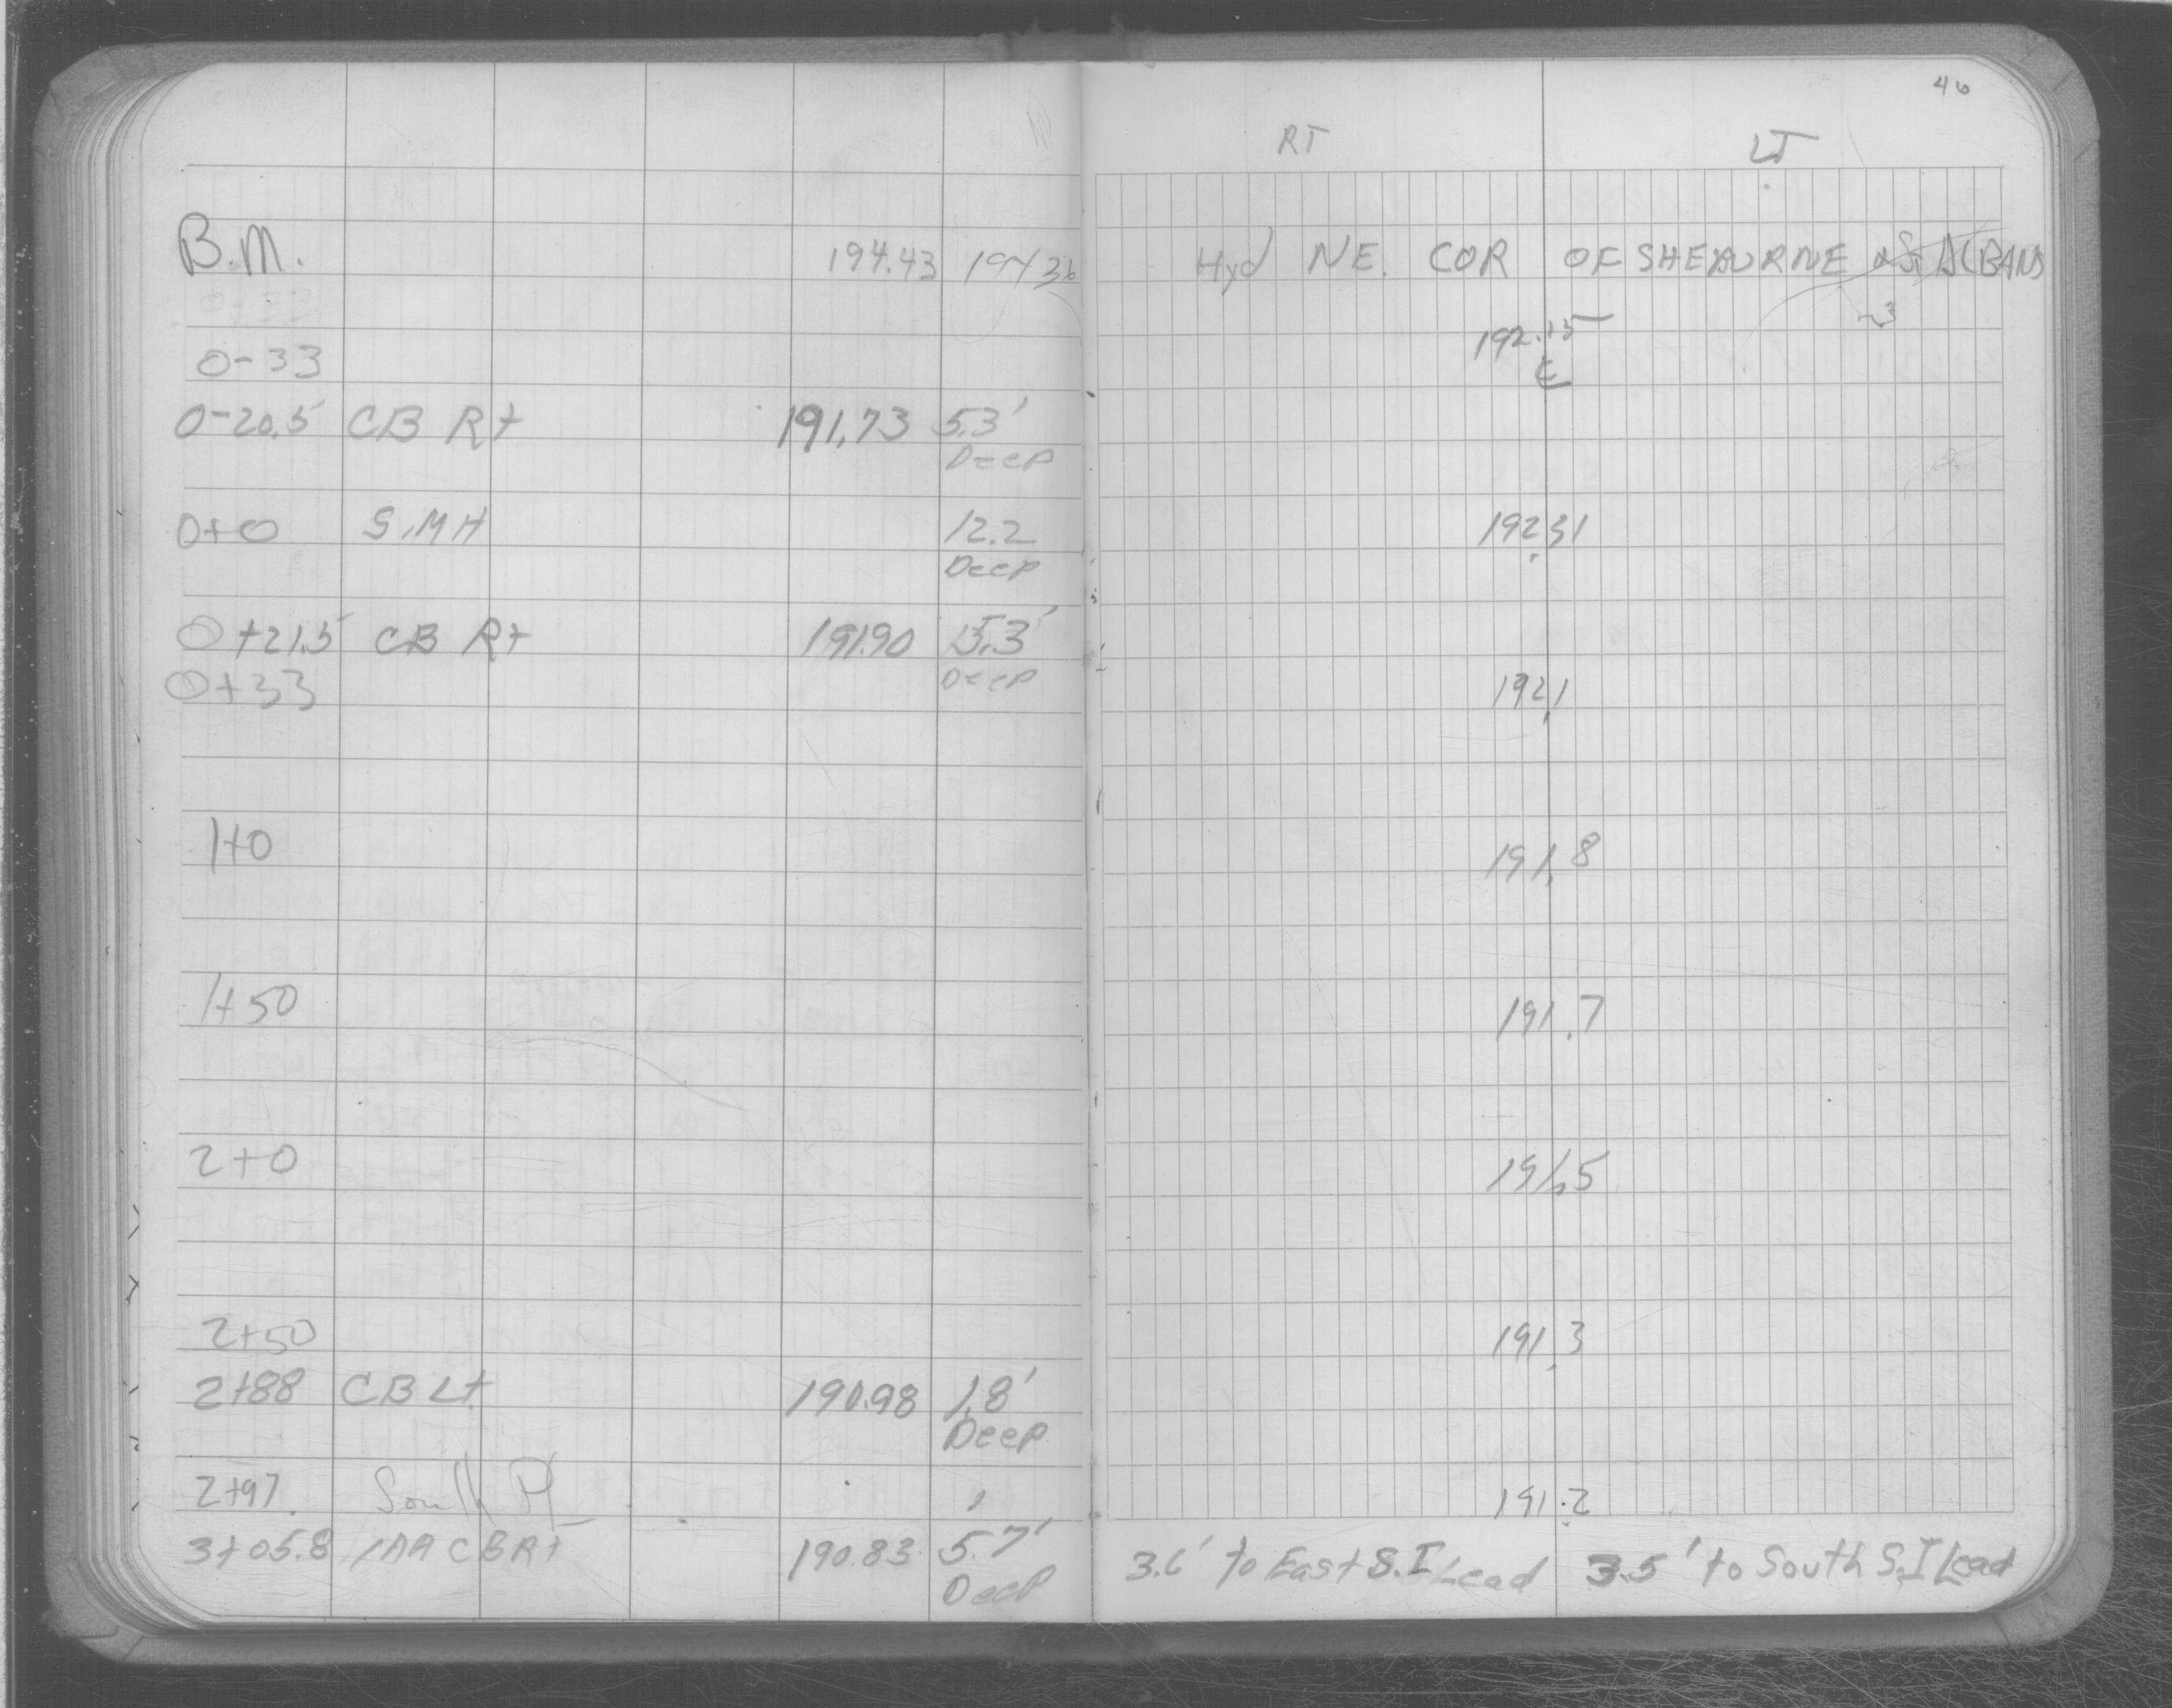 46
RT LT
B.M. 194.43 194.36 Hyd NE. COR OF SHERBURNE & St ALBANS
0-33 192.15
℄
0-20.5 CB Rt 191.73 5.3'
Deep
0+0 S.MH 12.2 192.31
Deep
0+21.5 CB Rt 191.90 5.3'
Deep
0+33 192.1
1+0 191.8
1+50 191.7
2+0 191.5
2+50 191.3
2+88 CB Lt 190.98 1.8'
Deep
2+97 South PL 191.2
3+05.8 CB Rt 190.83 5.7' 3.6' to East S.I Lead 3.5' to South S.I Lead
Deep